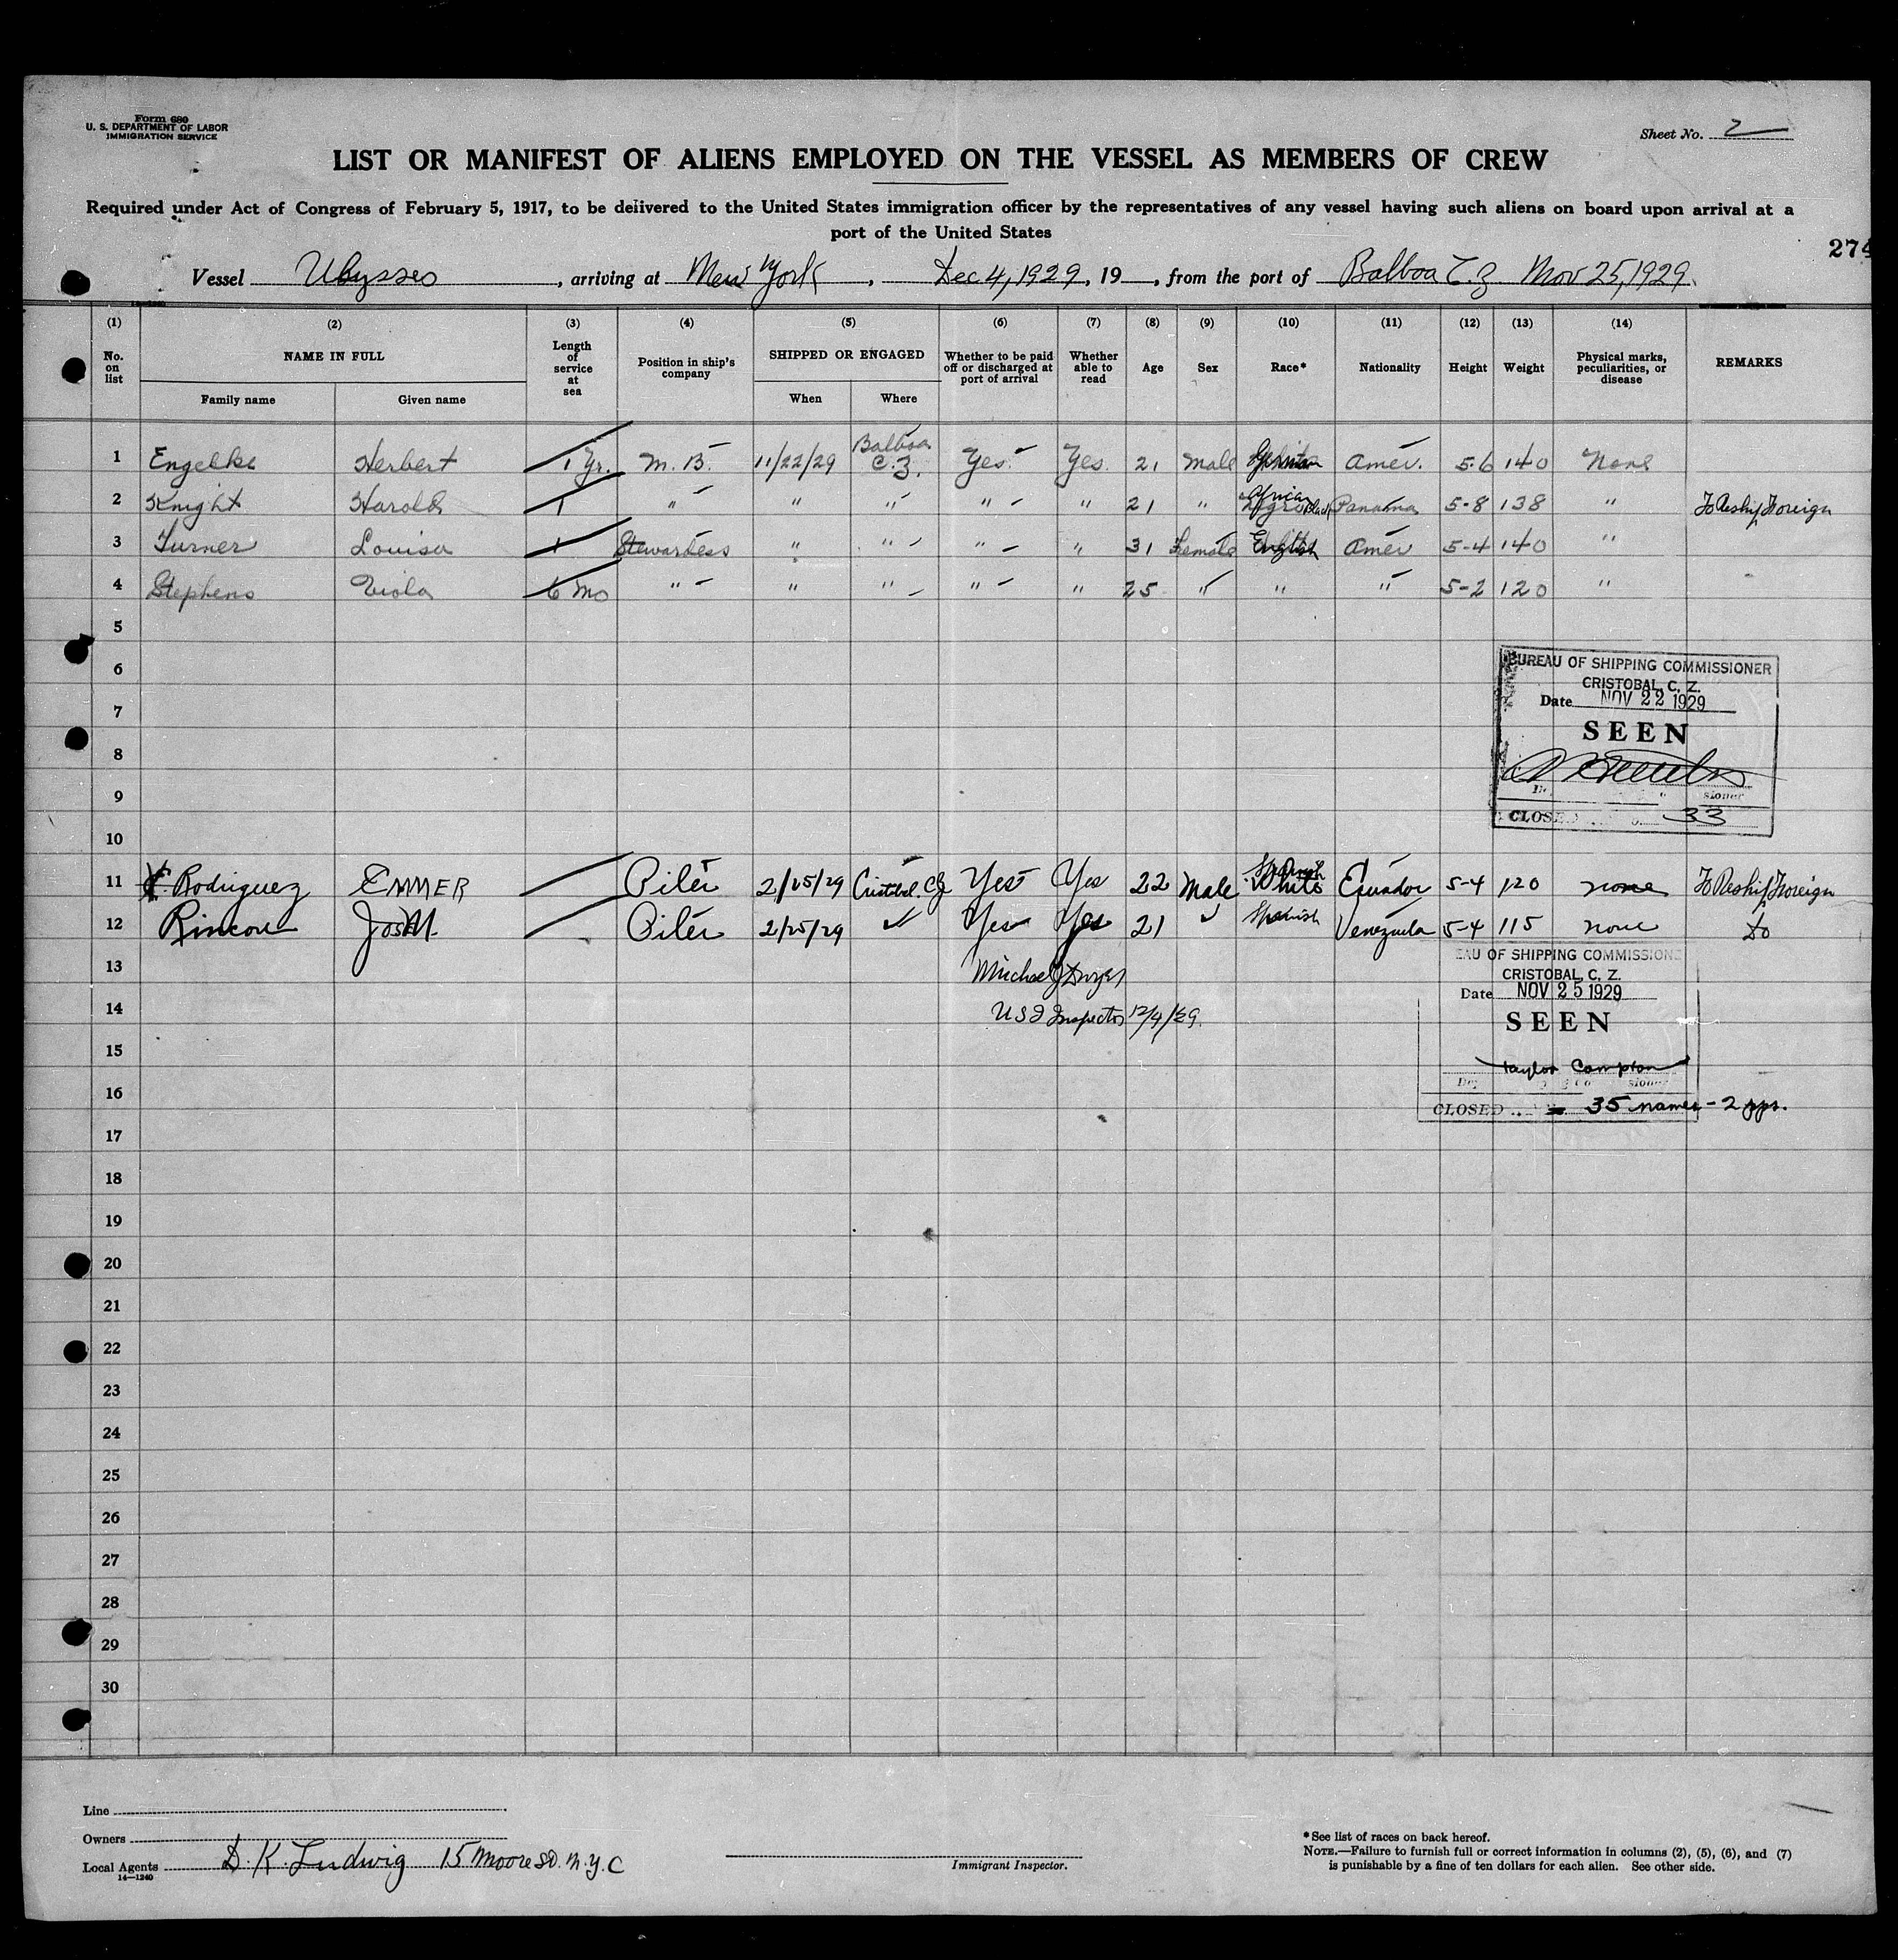 Form 680
U. S. DEPARTMENT OF LABOR
IMMIGRATION SERVICE
Sheet No. 2
LIST OR MANIFEST OF ALIENS EMPLOYED ON THE VESSEL AS MEMBERS OF CREW
Required under Act of Congress of February 5, 1917, to be delivered to the United States immigration officer by the representatives of any vessel having such aliens on board upon arrival at a
port of the United States
274
Vessel Ulysses, arriving at New York, Dec 4, 1929, 19 , from the port of Balboa C.Z Nov 25, 1929
(1) (2) (3) (4) (5) (6) (7) (8) (9) (10) (11) (12) (13) (14)
No. on list NAME IN FULL Length of service at sea Position in ship's company SHIPPED OR ENGAGED Whether to be paid off or discharged at port of arrival Whether able to read Age Sex Race* Nationality Height Weight Physical marks, peculiarities, or disease REMARKS
Family name Given name When Where
1 Engelke Herbert 1 Yr. M. B. 11/22/29 Balboa C.Z. Yes Yes. 21 Male German Amer. 5-6 140 None
2 Knight Harold 1 " " " " " 21 " African Black Panama 5-8 138 " To Reship Foreign
3 Turner Louisa 1 Stewardess " " " " 31 Female English Amer 5-4 140 "
4 Stephens Viola 6 Mo " " " " " 25 " " " 5-2 120 "
5
6
7
8
9
10
BUREAU OF SHIPPING COMMISSIONER
CRISTOBAL, C. Z.
Date NOV 22 1929
SEEN
CLOSED 33
11 Rodriguez EMMER Oiler 2/25/29 Cristobal. CZ Yes Yes 22 Male Spanish White Ecuador 5-4 120 none To Reship Foreign
12 Rincon Jos M. Oiler 2/25/29 Yes Yes 21 Spanish Venezuela 5-4 115 none do
13 Michael J Dwyer
14 USI Inspector 12/4/29.
15
16
17
18
19
20
21
22
23
24
25
26
27
28
29
30
EAU OF SHIPPING COMMISSION
CRISTOBAL, C. Z.
Date NOV 25 1929
SEEN
Taylor Compton
CLOSED 35 names - 2 pps.
Line
Owners
Local Agents D. K. Ludwig 15 Moore St. N.Y.C
14—1240
Immigrant Inspector.
*See list of races on back hereof.
NOTE.—Failure to furnish full or correct information in columns (2), (5), (6), and (7)
is punishable by a fine of ten dollars for each alien. See other side.